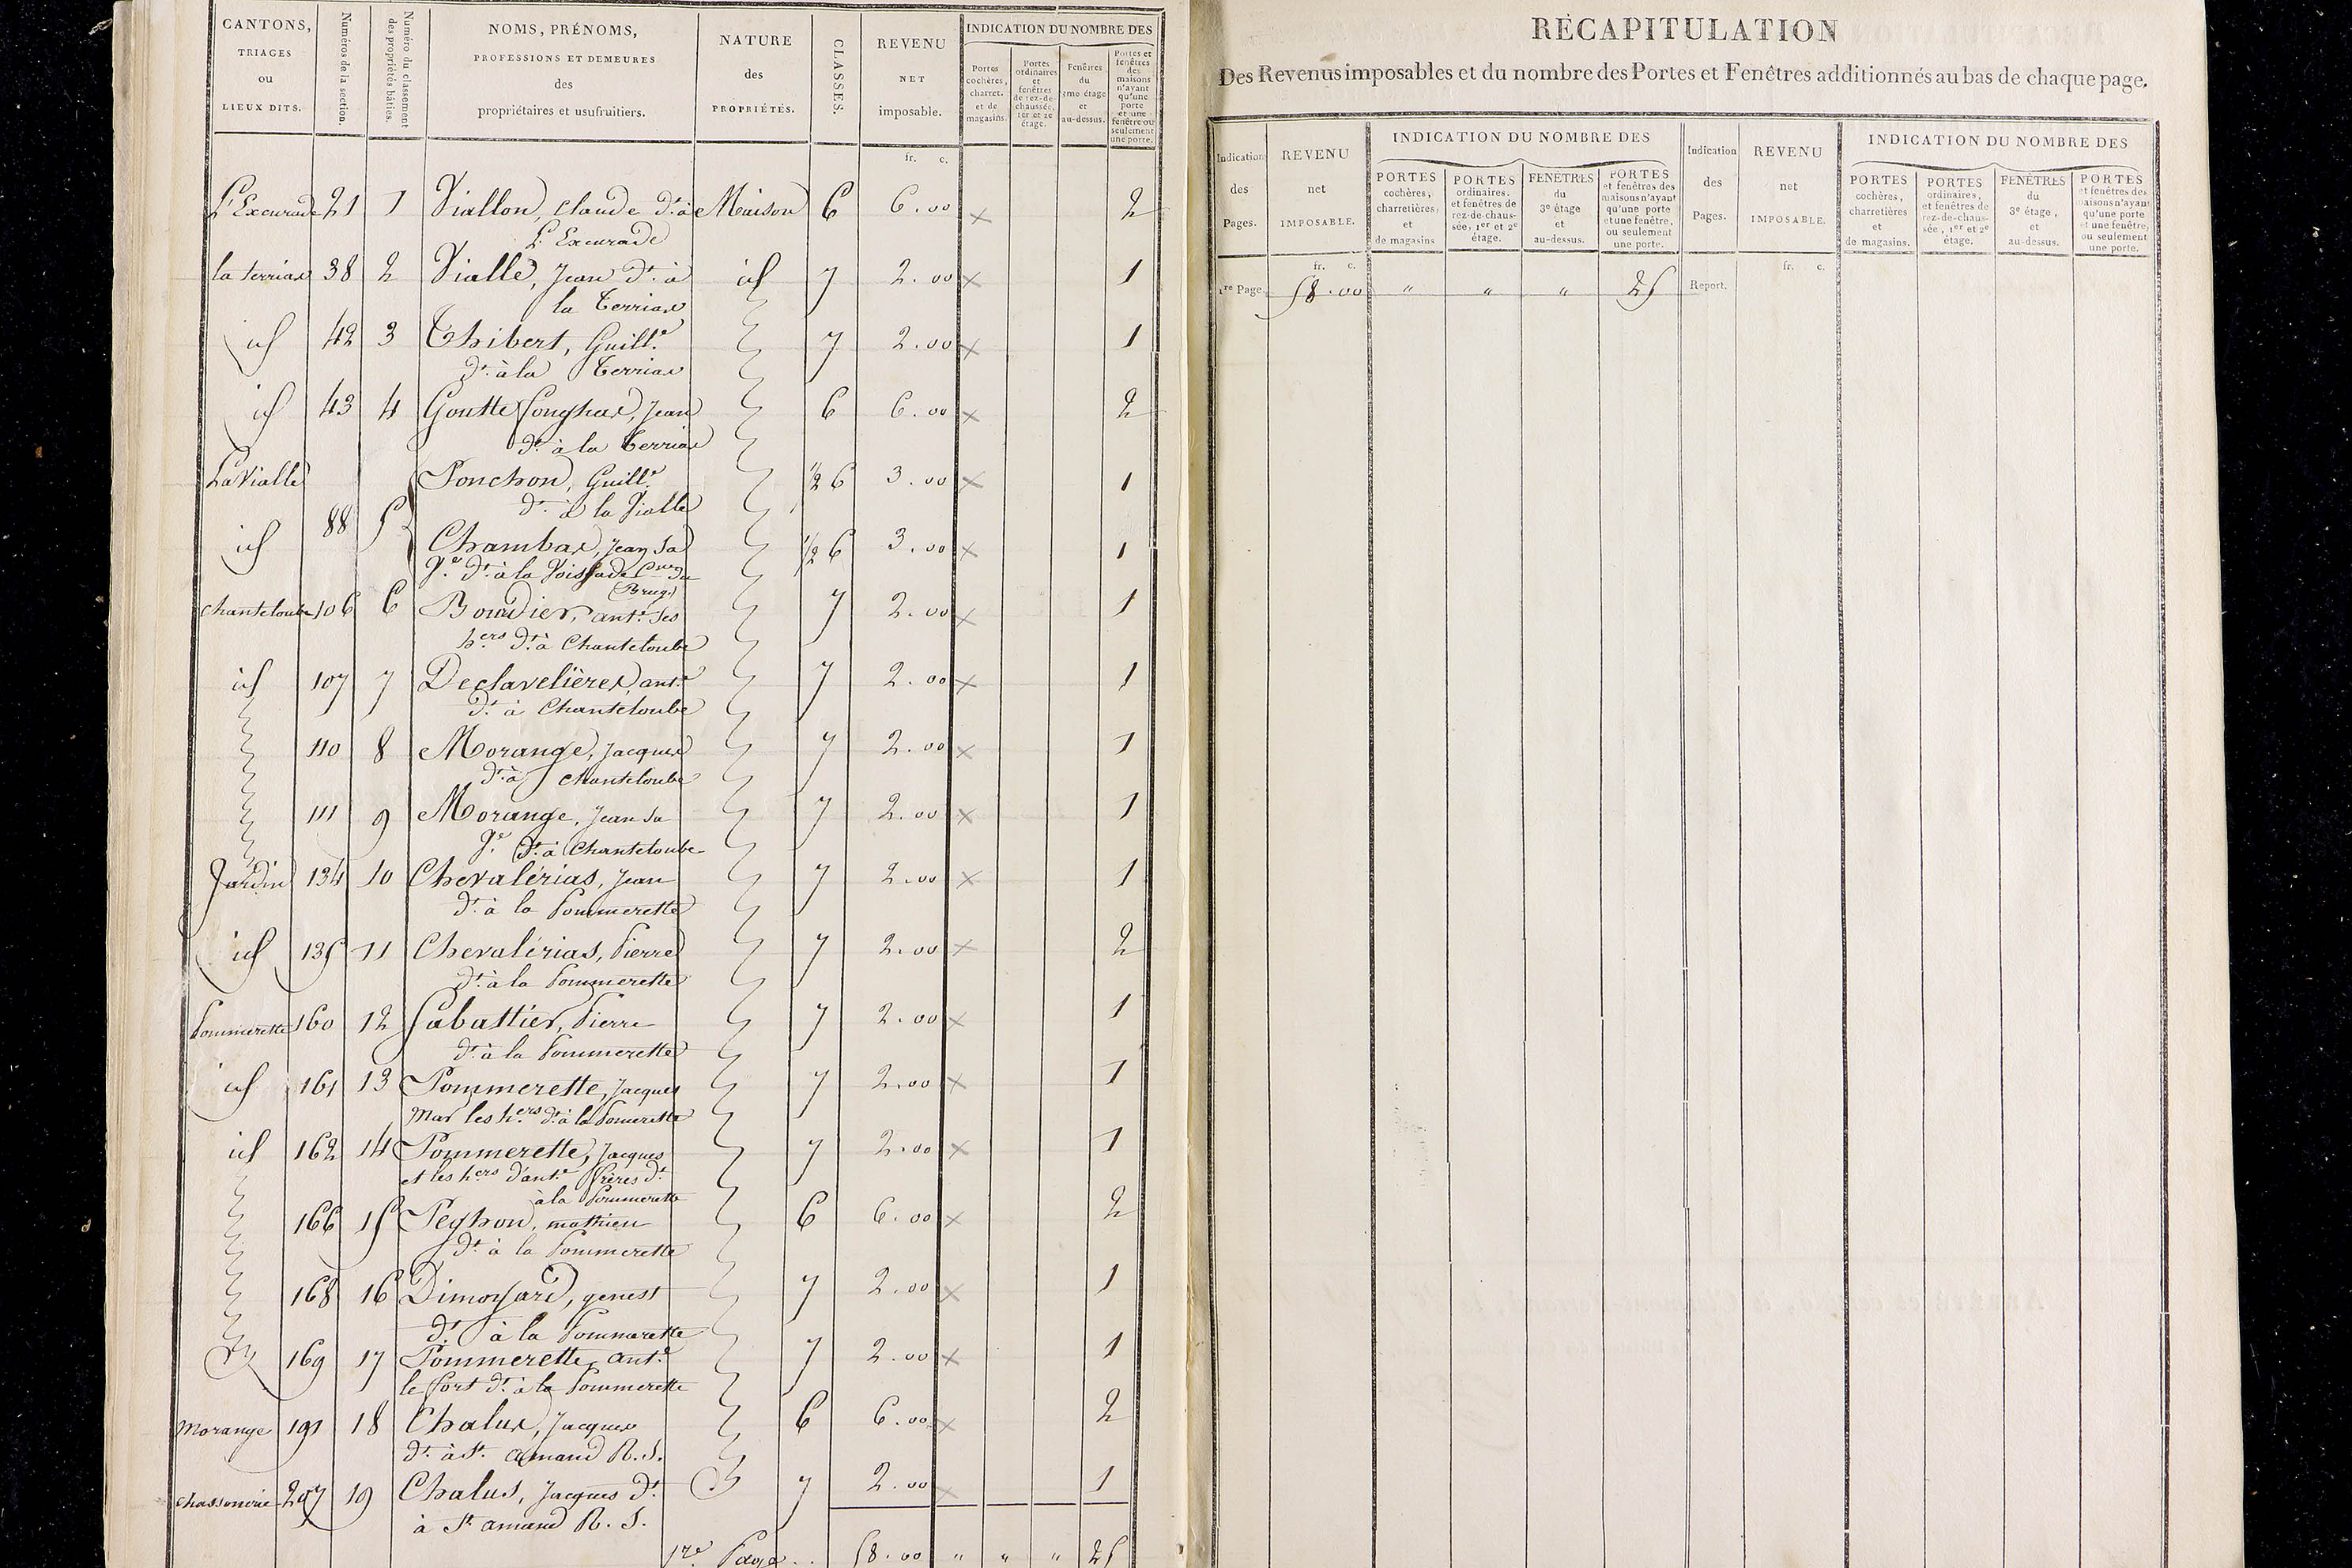 CANTONS, TRIAGES ou LIEUX DITS.
Numéros de la section.
Numéro du classement des propriétés bâties.
NOMS, PRÉNOMS, PROFESSIONS ET DEMEURES des propriétaires et usufruitiers.
NATURE des PROPRIÉTÉS.
CLASSES.
REVENU NET imposable.
INDICATION DU NOMBRE DES
Portes cochères, charret. et de magasins.
Portes ordinaires et fenêtres de rez-de-chaussée, 1er et 2e étage.
Fenêtres du 3me étage et au-dessus.
Portes et fenêtres des maisons n'ayant qu'une porte et une fenêtre ou seulement une porte.
fr. c.
L'Excurade 21 1 Viallon, claude dt. à Maison 6 6.00 × 2
L'Excurade
la terrias 38 2 Vialle, Jean dt. à id 7 2.00 × 1
la Terrias
id 42 3 Thibert, Guill.e 7 2.00 × 1
dt. à la Terrias
id 43 4 Goutte Jean 6 6.00 × 2
dt. à la Terrias
La Vialle Ponchon, Guill.e 1/2 6 3.00 × 1
dt. à la Vialle
88 5
id Chambas, Jean Sa 1/2 6 3.00 × 1
Ve. dt. à la
chanteloube 106 6 Bourdier, ant.e ses 7 2.00 × 1
hers dt. à Chanteloube
id 107 7 Desclavelières, ant.e 7 2.00 × 1
dt. à Chanteloube
110 8 Morange, Jacques 7 2.00 × 1
dt. à Chanteloube
111 9 Morange, Jean Sa 7 2.00 × 1
Ve. dt. à Chanteloube
Jardin 134 10 Chevalérias, Jean 7 2.00 × 1
dt. à la Pommerette
id 135 11 Chevalérias, Pierre 7 2.00 × 2
dt. à la Pommerette
Pommerette 160 12 Sabattier, Pierre 7 2.00 × 1
dt. à la Pommerette
id 161 13 Pommerette, Jacques 7 2.00 × 1
Mar les hers dt. à la Pomerette
id 162 14 Pommerette, Jacques 7 2.00 × 1
et les hers d'ant.e frères dt.
à la Pommerette
166 15 Peghon, mathieu 6 6.00 × 2
dt. à la Pommerette
168 16 Dimoyard, genest 7 2.00 × 1
dt. à la Pommerette
169 17 Pommerette, ant.e 7 2.00 × 1
le fort dt. à la Pommerette
Morange 191 18 Chalus, Jacques 6 6.00 × 2
dt. à St. amand R. S.
chassonerie 207 19 Chalus, Jacques dt. 7 2.00 × 1
à St. amand R. S.
1re Page.. 58.00 " " " 25
RÉCAPITULATION
Des Revenus imposables et du nombre des Portes et Fenêtres additionnés au bas de chaque page.
Indication des Pages.
REVENU net IMPOSABLE.
INDICATION DU NOMBRE DES
PORTES cochères, charretières, et de magasins
PORTES ordinaires, et fenêtres de rez-de-chaussée, 1er et 2e étage.
FENÊTRES du 3e étage et au-dessus.
PORTES et fenêtres des maisons n'ayant qu'une porte et une fenêtre, ou seulement une porte.
Indication des Pages.
REVENU net IMPOSABLE.
INDICATION DU NOMBRE DES
PORTES cochères, charretières et de magasins.
PORTES ordinaires, et fenêtres de rez-de-chaussée, 1er et 2e étage.
FENÊTRES du 3e étage, et au-dessus.
PORTES et fenêtres des maisons n'ayant qu'une porte et une fenêtre, ou seulement une porte.
fr. c. fr. c.
1re Page. 58.00 " " " 25 Report.